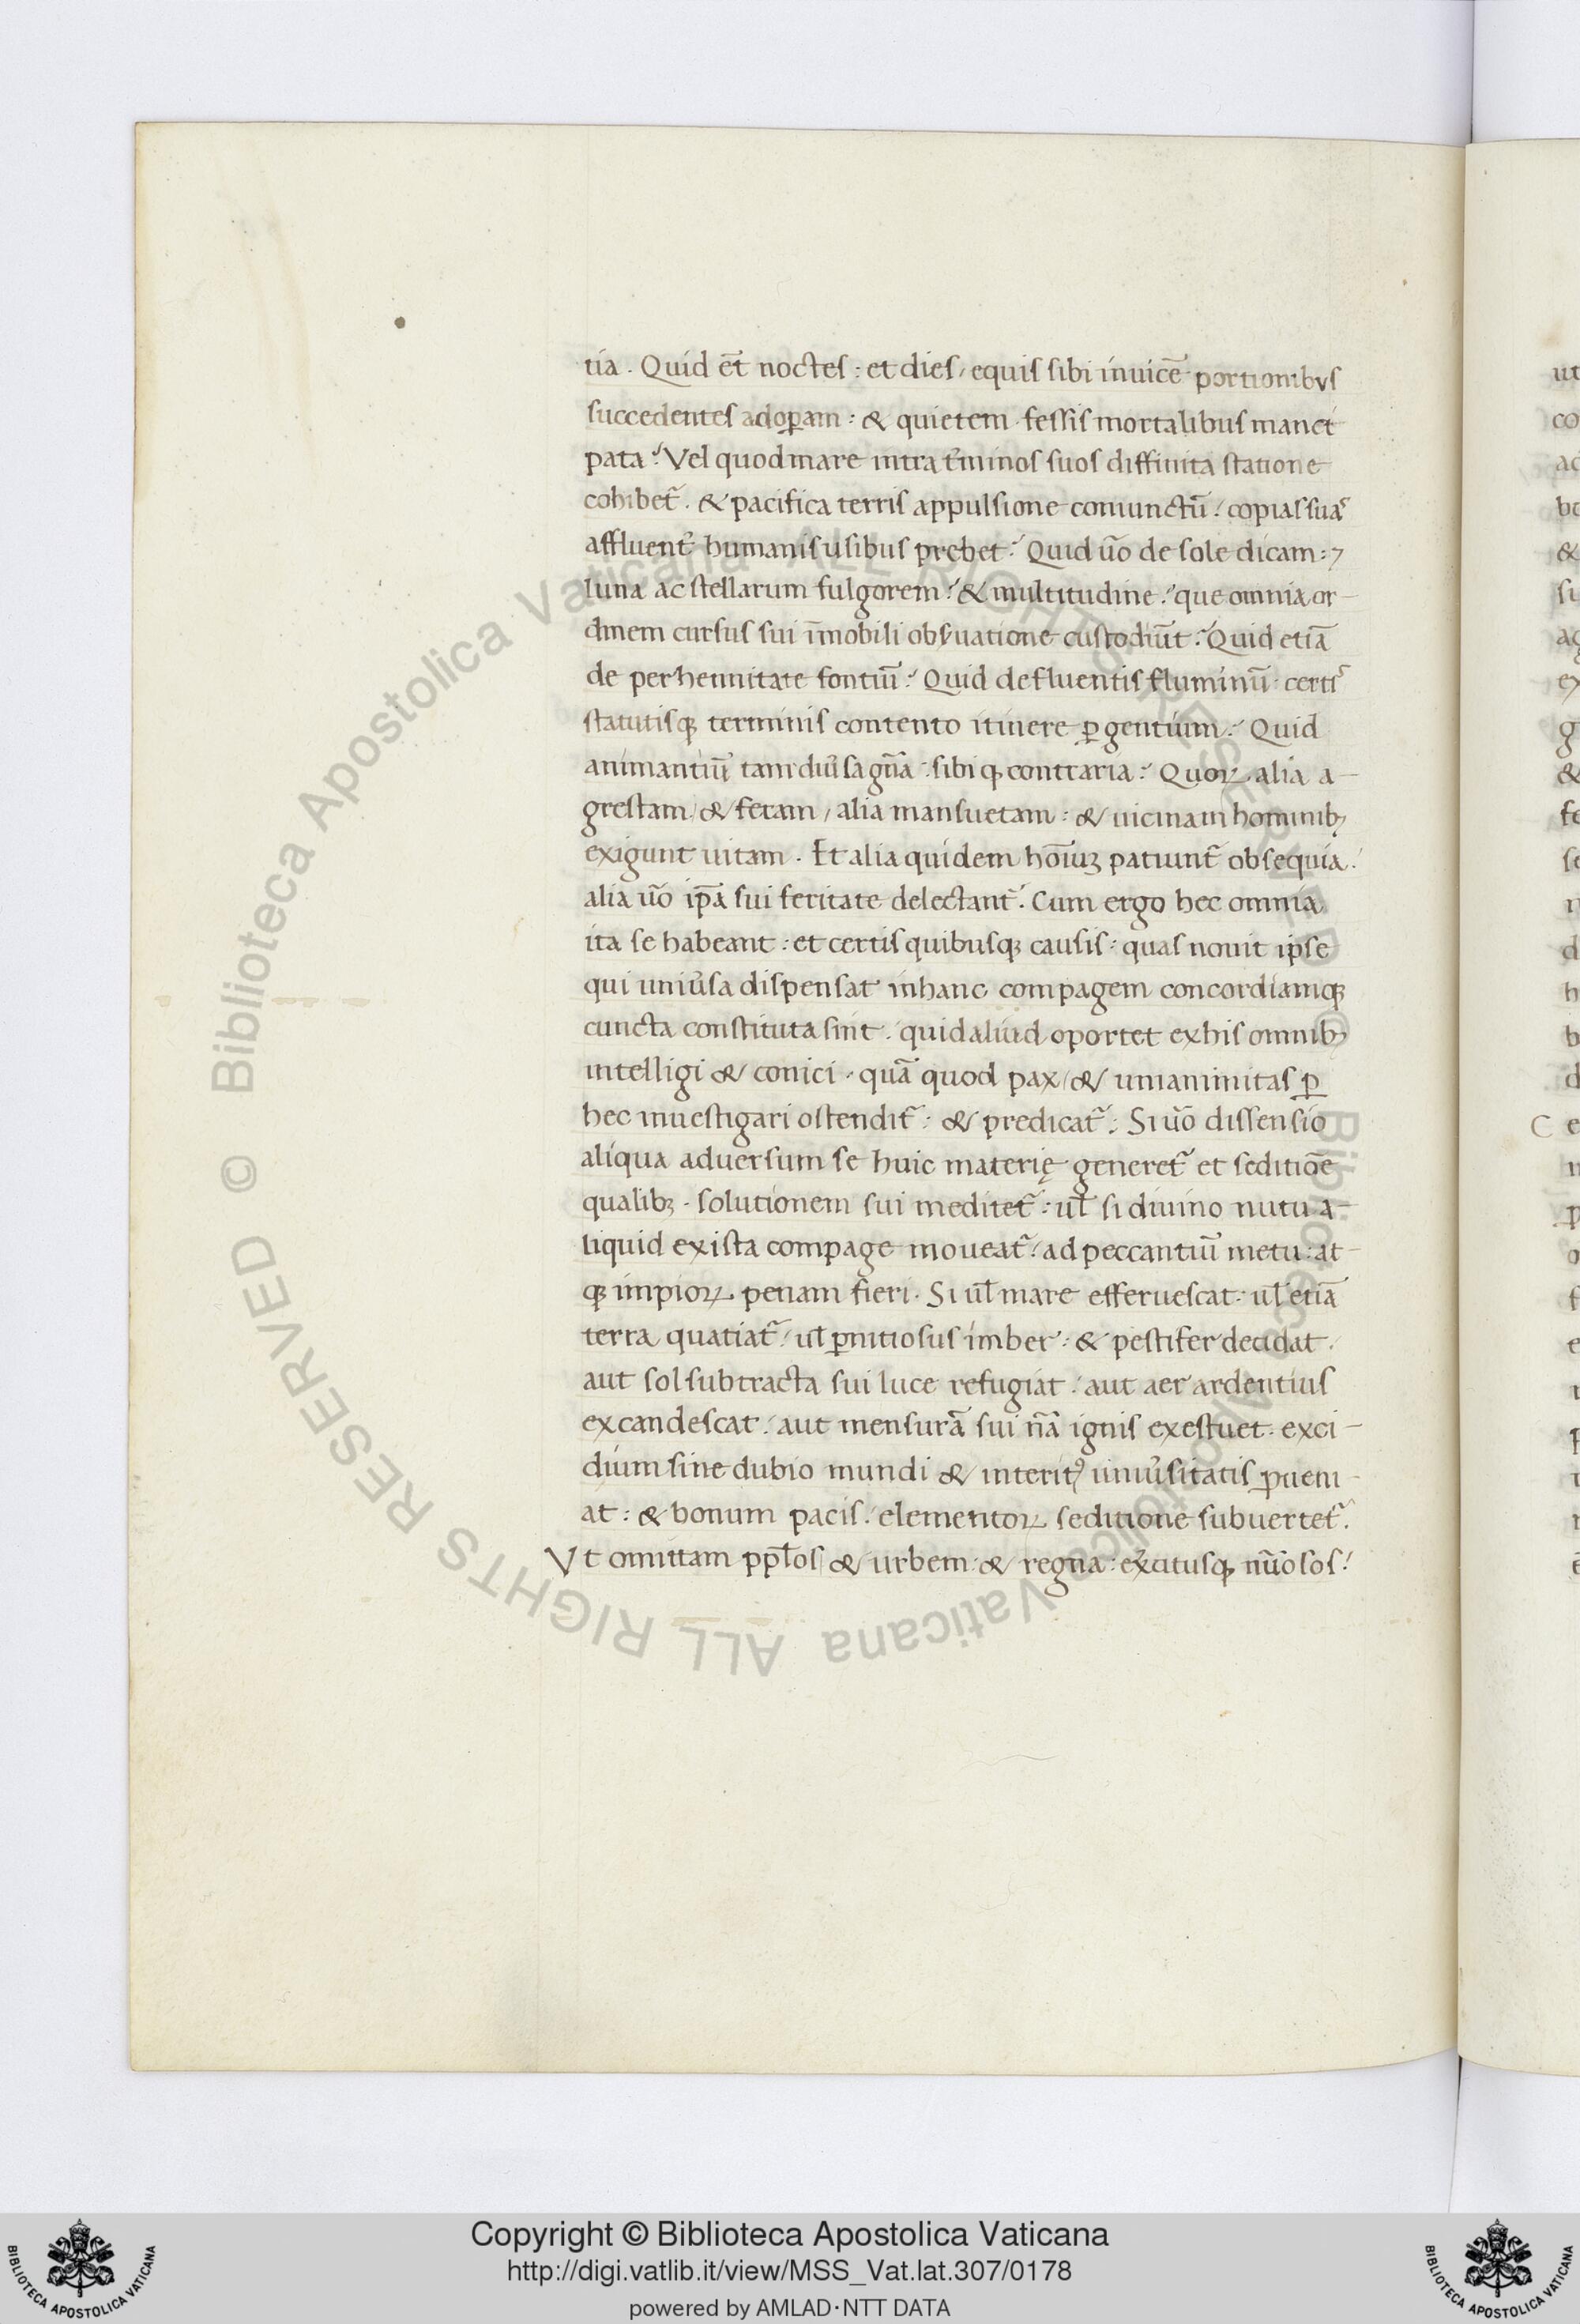 tia. Quid et̄ noctes: et dies, equis sibi inuicē portionibus
succedentes adoꝑam: & quietem fessis mortalibus manci
pata? Vel quod mare intra t̄minos suos diffinita statione
cohibet᷑. & pacifica terris appulsione coniunctū, copias suas
affluent᷑ humanis usibus prebet? Quid ūo de sole dicam: ⁊
luna ac stellarum fulgorem? & multitudine? que omnia or-
dinem cursus sui īmobili obs̄uatione custodiūt? Quid etiā
de perhennitate fontiū? Quid defluentis fluminū certis
statutisqꝫ terminis contento itinere ꝑgentium? Quid
animantiū tam diūsa gn̄a: sibiqꝫ contraria? Quoꝝ alia a-
grestam, & feram, alia mansuetam: & uicinam hominibꝫ
exigunt uitam. Et alia quidem hōiuꝫ patiunt᷑ obsequia.
alia ūo ip̄a sui feritate delectant᷑. Cum ergo hec omnia
ita se habeant: et certis quibusqꝫ causis: quas nouit ipse
qui uniūsa dispensat inhanc compagem concordiamqꝫ
cuncta constituta sint. quid aliud oportet exhis omnibꝫ
intelligi & conici, quā quod pax, & unanimitas ꝑ
hec inuestigari ostendit᷑: & predicat᷑. Si ūo dissensio
aliqua aduersum se huic materię generet᷑ et seditiōe
qualibꝫ. solutionem sui meditet᷑: ul̄ si diuino nutu a-
liquid ex ista compage moueat᷑, ad peccantiū metu: at-
qꝫ impioꝝ penam fieri. Si ul̄ mare efferuescat. ul̄ etiā
terra quatiat᷑, ul̄ ꝑnitiosus imber: & pestifer decidat.
aut sol subtracta sui luce refugiat. aut aer ardentius
excandescat. aut mensurā sui nā ignis exestuet. exci-
dium sine dubio mundi & interitꝰ uniūsitatis ꝓueni-
at: & bonum pacis. elementoꝝ seditione subuertet᷑.
Vt omittam pp̄los & urbem & regna: ex̄citusqꝫ nūosos!
ut
co
ac
bo
&
si
ag
ex
g
&
fe
se
d
h
b
d
C e
Copyright © Biblioteca Apostolica Vaticana
http://digi.vatlib.it/view/MSS_Vat.lat.307/0178
powered by AMLAD·NTT DATA
BIBLIOTECA APOSTOLICA VATICANA
BIBLIOTECA APOSTOLICA VATICANA
© Biblioteca Apostolica Vaticana ALL RIGHTS RESERVED
© Biblioteca Apostolica Vaticana ALL RIGHTS RESERVED